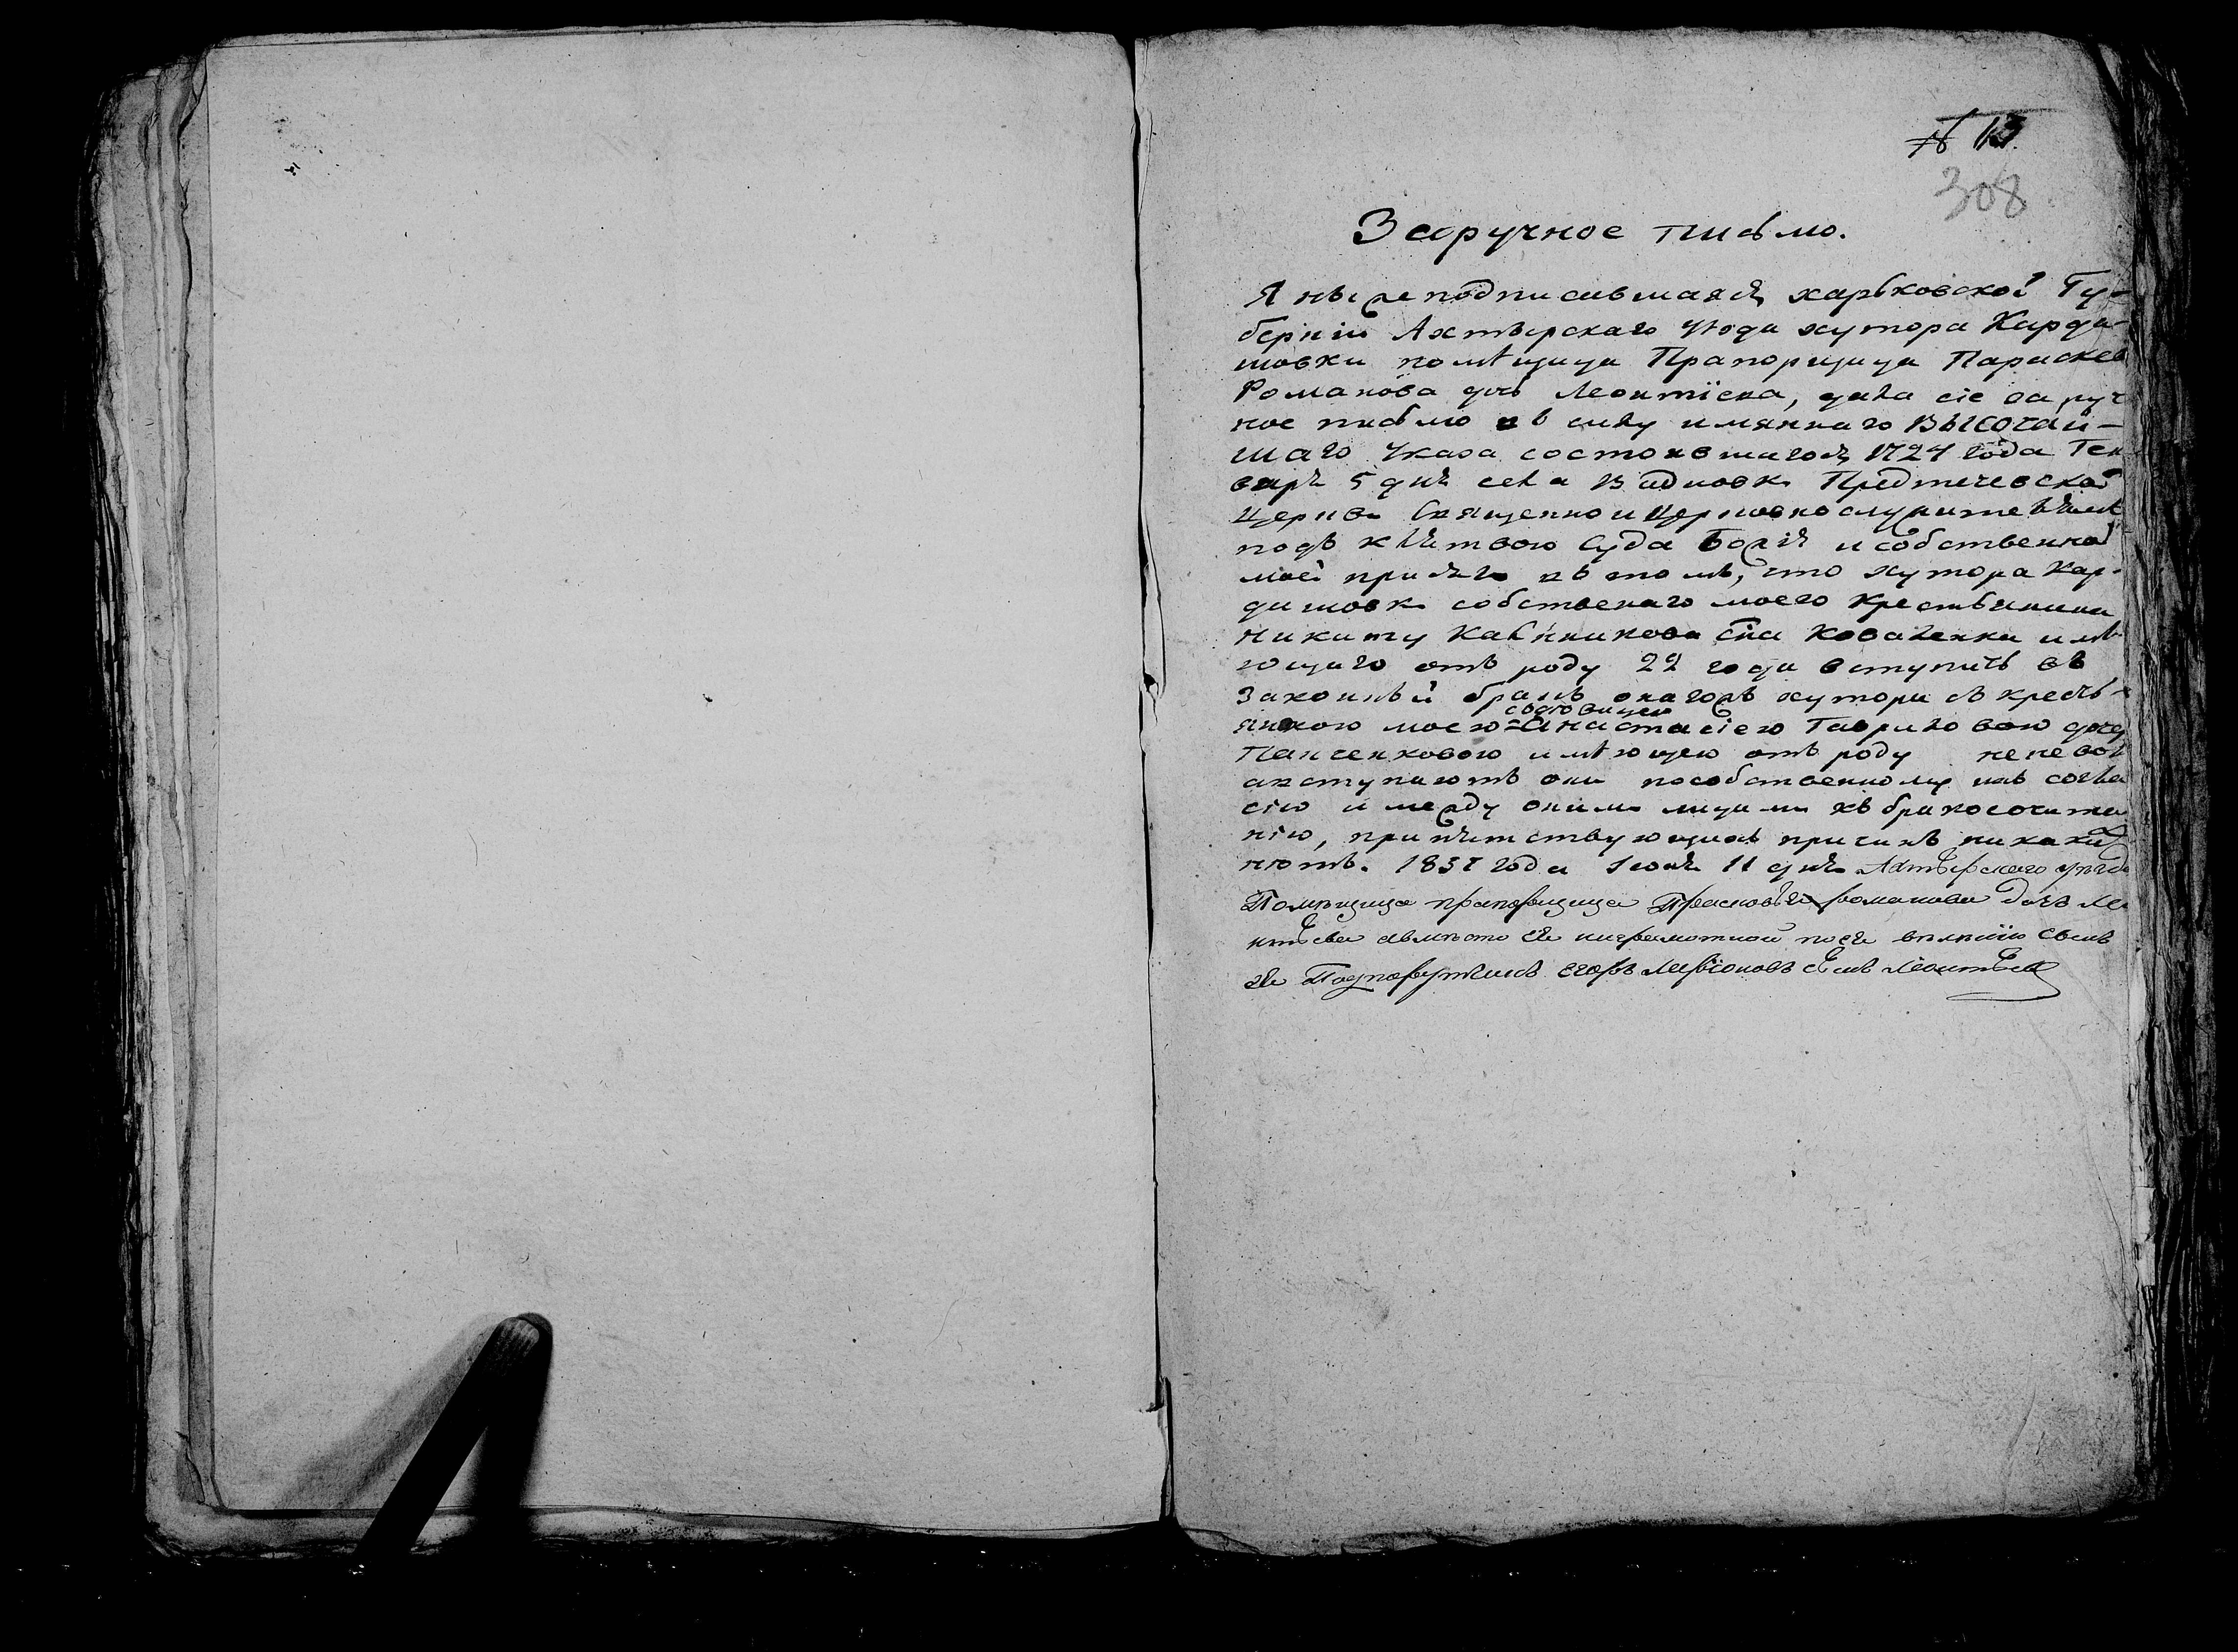 № 13
308
Заручное письмо.
Я нижеподписавшаяся, харьковской Гу-
берніи Ахтырскаго уѣзда хутора Карда-
шовки помѣщица Прапорщица Параскев
Романова дочь Леонтіева, дала сіе заруч
ное письмо въ силу имяннаго Высочай-
шаго Указа состоявшагося 1724 года Ген
варя 5 дня села Предтечевской
Церкви Священно и церковнослужителямъ
подъ клятвою Суда Божія и собственной
моей присяги въ томъ, что хутора Кар-
дашовки собственаго моего крестьянина
Никиту Калинникова сна Коваленка имѣ
ющаго отъ роду 22 года вступить въ
Законный бракъ онагожъ хутора съ кресть-
янкою моею вдовицею Анастасіею Гавриловою доч
Панченковою имѣющею отъ роду не невол
а вступаютъ они пособственному ихъ согла
сію и между оними лицами къ бракосочита
нію, припятствующихъ причинъ никаких
нютъ. 1831 года Іюня 11 дня Ахтырского уѣзда
Помѣщица прапорщица Прасковья романова дочь Ле
нтьева авместо ея ниграмотной поея велению сынъ
ея Подпоручикъ егоръ сынъ Леонтьев